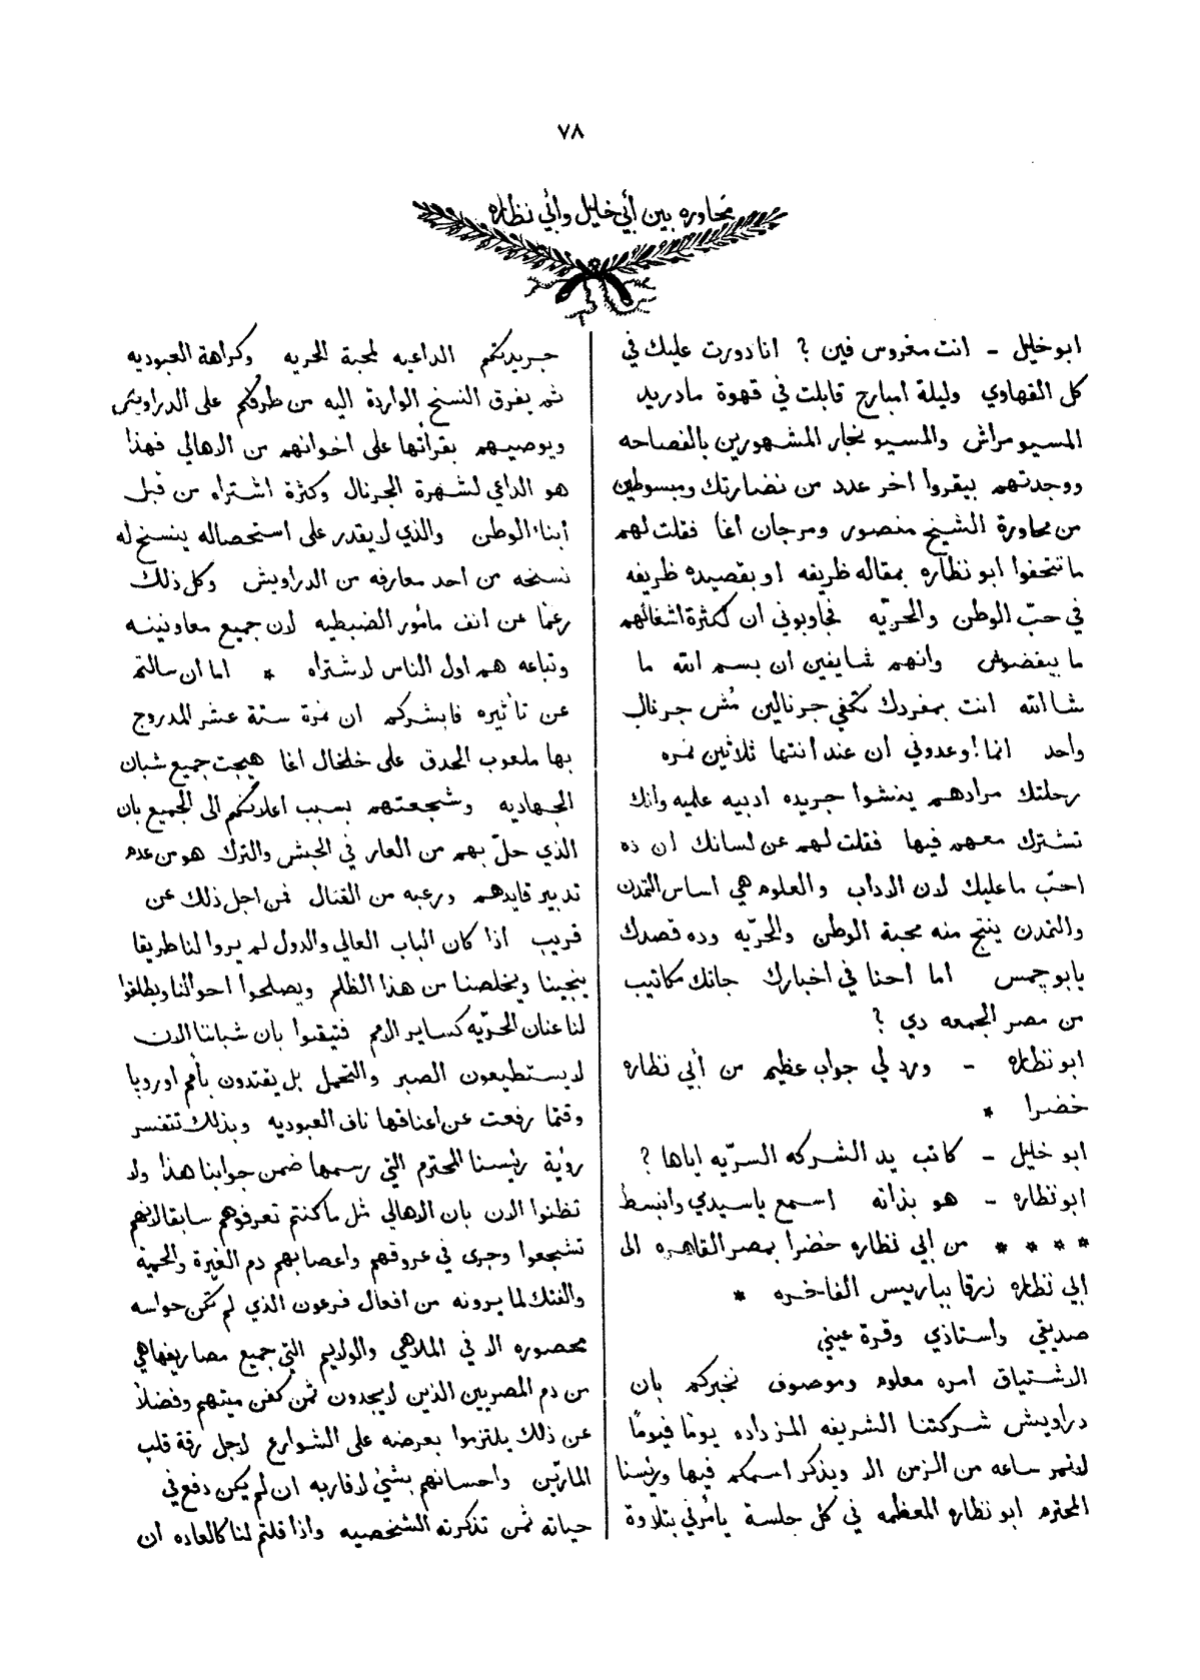 ٧٨
محاوره بين أبي خليل وأبي نظاره
ابو خليل - انت مغروس فين ؟ انا دورت عليك في
كل القهاوي وليلة امبارح قابلت في قهوة مادريد
المسيو مراش والمسيو نجار المشهورين بالفصاحه
ووجدتهم بيقروا اخر عدد من نضارتك ومبسوطين
من محاورة الشيخ منصور ومرجان اغا فقلت لهم
ما تتحفوا ابو نظاره بمقاله ظريفه او بقصيده ظريفه
في حبّ الوطن والحرّيه فجاوبوني ان لكثرة اشغالهم
ما بيفضوش وانهم شايفين ان بسم الله ما
شا الله انت بمفردك تكفي جرنالين مُش جرنال
واحد انما اوعدوني ان عند انتها ثلاثين نمره
رحلتك مرادهم ينشوا جريده ادبيه علميه وانك
تشترك معهم فيها فقلت لهم عن لسانك ان ده
احبّ ما عليك لان الاداب والعلوم هي اساس التمدن
والتمدن ينتج منه محبة الوطن والحرّيه وده قصدك
يابو چمس اما احنا في اخبارك جانك مكاتيب
من مصر الجمعه دي ؟
ابو نظاره - ورد لي جواب عظيم من أبي نظاره
خضرا *
ابو خليل - كاتب يد الشركه السرّيه اياها ؟
ابو نظاره - هو بذاته اسمع ياسيدي وانبسط
* * * * من ابي نظاره خضرا بمصر القاهره الى
ابي نظاره زرقا بباريس الفاخره *
صديقي واستاذي وقرة عيني
الاشتياق امره معلوم وموصوف نخبركم بان
دراويش شركتنا الشريفه المزداده يومًا فيومًا
لا تمر ساعه من الزمن الا ويذكر اسمكم فيها ورئيسنا
المحترم ابو نظاره المعظمه في كل جلسة يأمرني بتلاوة
جريدتكم الداعيه لمحبة الحريه وكراهة العبوديه
ثم يفرق النسخ الواردة اليه من طرفكم على الدراويش
ويوصيهم بقرأتها على اخوانهم من الاهالي فهذا
هو الداعي لشهرة الجرنال وكثرة اشتراه من قبل
أبناء الوطن والذي لا يقدر على استحصاله ينسخ له
نسخه من احد معارفه من الدراويش وكل ذلك
رغمًا عن انف مأمور الضبطيه لان جميع معاونينه
وتباعه هم اول الناس لاشتراه * اما ان سالتم
عن تأثيره فابشركم ان نمرة ستة عشر المدروج
بها ملعوب الحدق على خلخال اغا هيجت جميع شبان
الجهاديه وشجعتهم بسبب اعلانكم الى الجميع بان
الذي حلّ بهم من العار في الحبش والترك هو من عدم
تدبير قايدهم ورعبه من القتال فمن اجل ذلك عن
قريب اذا كان الباب العالي والدول لم يروا لنا طريقا
ينجينا ويخلصنا من هذا الظلم ويصلحوا احوالنا ويطلقوا
لنا عنان الحرّيه كساير الامم فتيقنوا بان شباننا الان
لا يستطيعون الصبر والتحمل بل يقتدون بأمم اوروپا
وقتما رفعت عن اعناقها ناف العبوديه وبذلك تتفسر
رؤية رئيسنا المحترم التي رسمها ضمن جوابنا هذا ولا
تظنوا الان بان الاهالي مثل ما كنتم تعرفوهم سابقا لانهم
تشجعوا وجرى في عروقهم واعصابهم دم الغيرة والحمية
والفتك لما يرونه من افعال فرعون الذي لم تكن حواسه
محصوره الا في الملاهي والولايم التي جميع مصاريفها هي
من دم المصريين الذين لا يجدون ثمن كفن ميتهم وفضلا
عن ذلك يلتزموا بعرضه على الشوارع لاجل رقة قلب
المارّين واحسانهم بشئ لاقاربه ان لم يكن دفع في
حياته ثمن تذكرته الشخصيه واذا قلتم لنا كالعاده ان